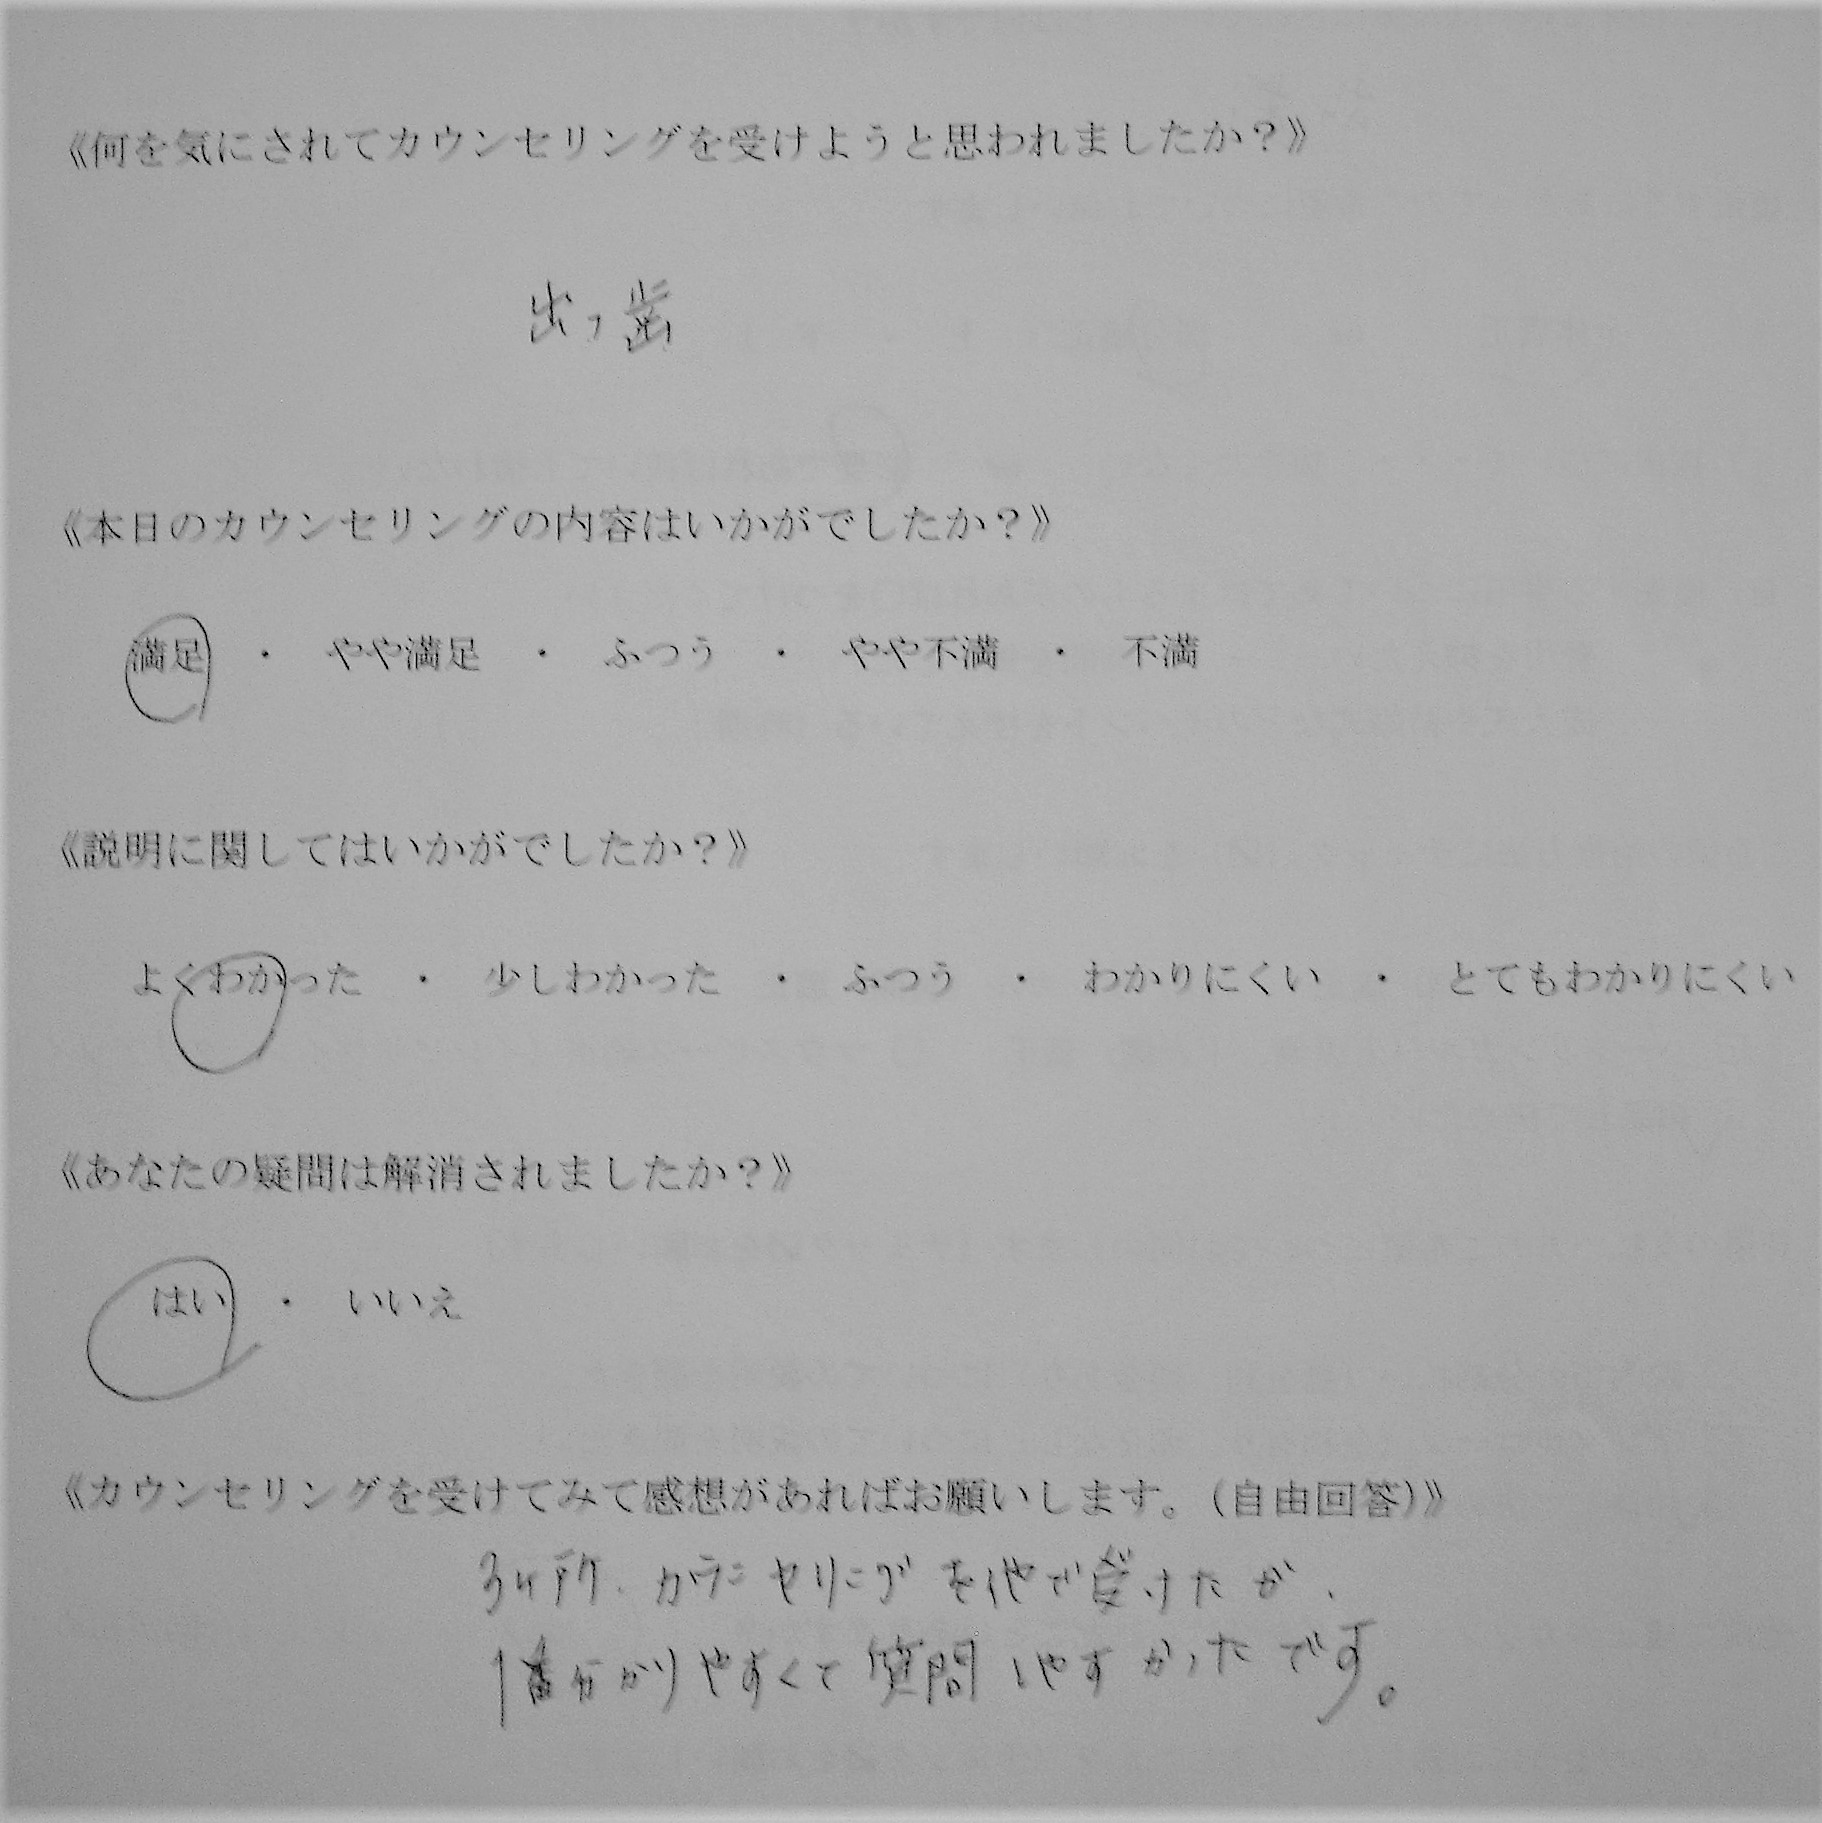 《何を気にされてカウンセリングを受けようと思われましたか？》
出っ歯
《本日のカウンセリングの内容はいかがでしたか？》
満足　・　やや満足　・　ふつう　・　やや不満　・　不満
《説明に関してはいかがでしたか？》
よくわかった　・　少しわかった　・　ふつう　・　わかりにくい　・　とてもわかりにくい
《あなたの疑問は解消されましたか？》
はい　・　いいえ
《カウンセリングを受けてみて感想があればお願いします。（自由回答）》
3ヶ所、カウンセリングを他で受けたが、
1番分かりやすくて質問しやすかったです。